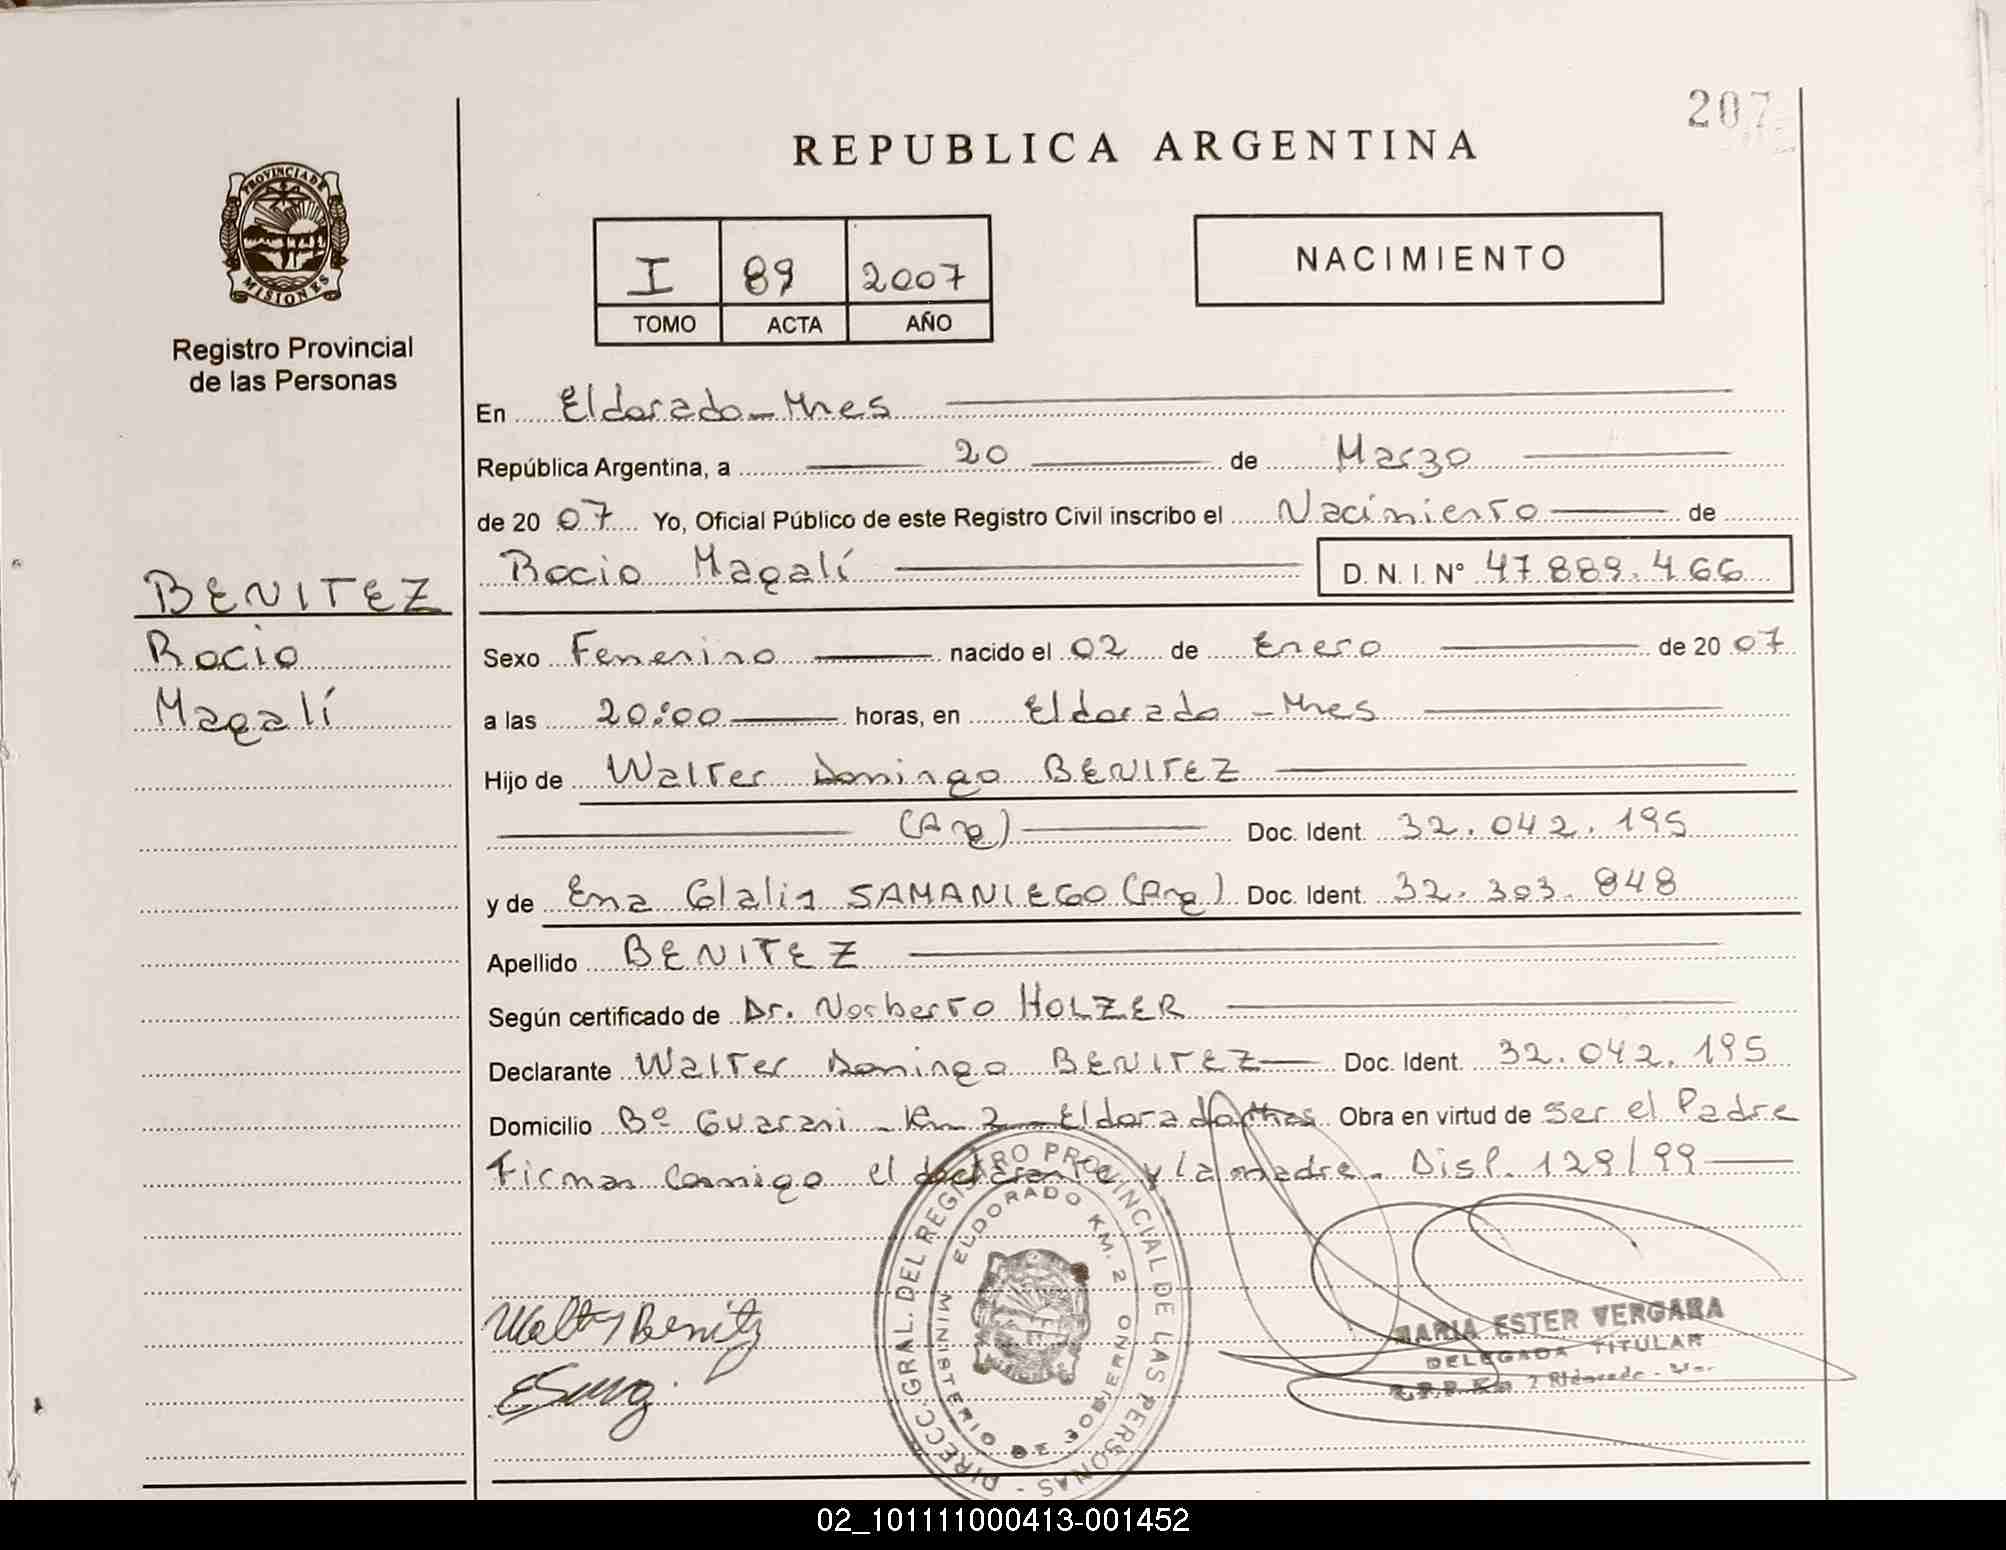 207
REPUBLICA ARGENTINA
PROVINCIA DE
MISIONES
Registro Provincial
de las Personas
I 89 2007
TOMO ACTA AÑO
NACIMIENTO
En Eldorado - Mnes
República Argentina, a 20 de Marzo
de 20 07 Yo, Oficial Público de este Registro Civil inscribo el Nacimiento de
Rocio Magalí D. N. I. Nº 47889.466
BENITEZ
Rocio
Magalí
Sexo Femenino nacido el 02 de Enero de 20 07
a las 20:00 horas, en Eldorado - Mnes
Hijo de Walter Domingo BENITEZ
(Arg) Doc. Ident. 32.042.195
y de Ena Glalis SAMANIEGO (Arg) Doc. Ident. 32.303.848
Apellido BENITEZ
Según certificado de Dr. Norberto HOLZER
Declarante Walter Domingo BENITEZ Doc. Ident. 32.042.195
Domicilio Bº Guarani - Km 2 - Eldorado Mnes Obra en virtud de Ser el Padre
Firman Conmigo el declarante y la madre. Disp. 129/99
DIRECC. GRAL. DEL REGISTRO PROVINCIAL DE LAS PERSONAS -
MINISTERIO DE GOBIERNO ELDORADO KM. 2
Walter Benitz
MARIA ESTER VERGARA
DELEGADA TITULAR
2 Eldorado -
02_101111000413-001452